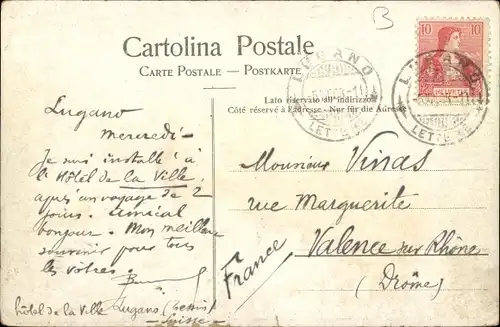 B
10 10
HELVETIA
Cartolina Postale
CARTE POSTALE - POSTKARTE
LUGANO
LETTERE
LUGANO
LETTERE
Lato riservato all'indirizzo
Côté réservé à l'adresse - Nur für die Adresse
Lugano
mercredi -
Je suis installé à
l'Hôtel de La Ville,
après un voyage de 2
jours. Amical
bonjour. Mon meilleur
souvenir pour tous
les vôtres.
hôtel de la Ville Lugano (Tessin)
- Suisse -
Monsieur Vinas
rue Marguerite
Valence sur Rhône
(Drôme)
France